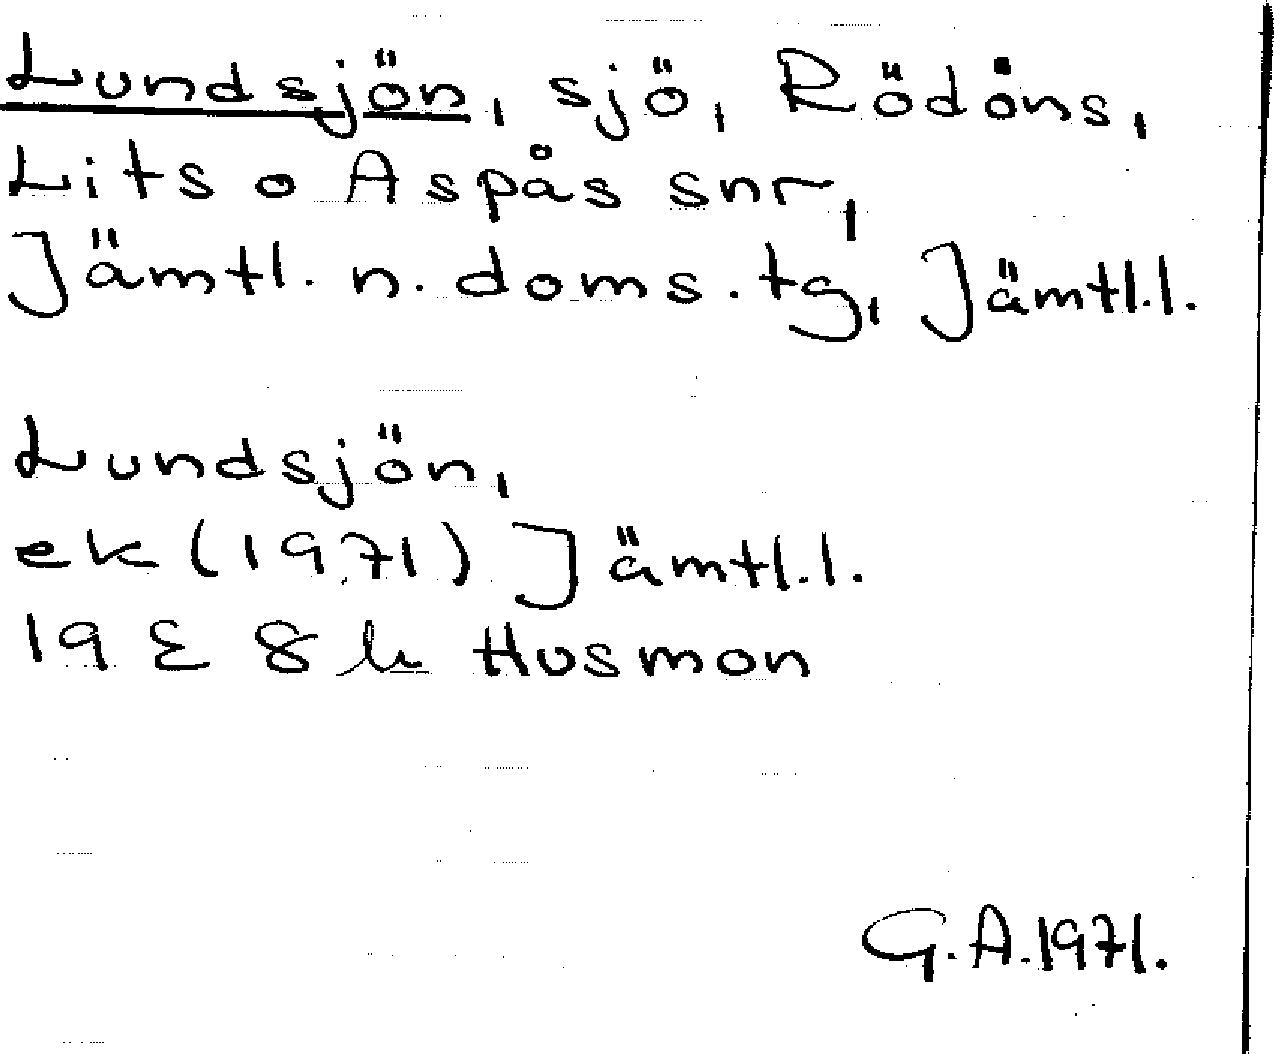 Lundsjön, sjö, Rödöns,
Lits o Aspås snr,
Jämtl. n. doms. tg, Jämtl.l.
Lundsjön,
ek (1971) Jämtl.l.
19 E 8 h Husmon
G.A.1971.